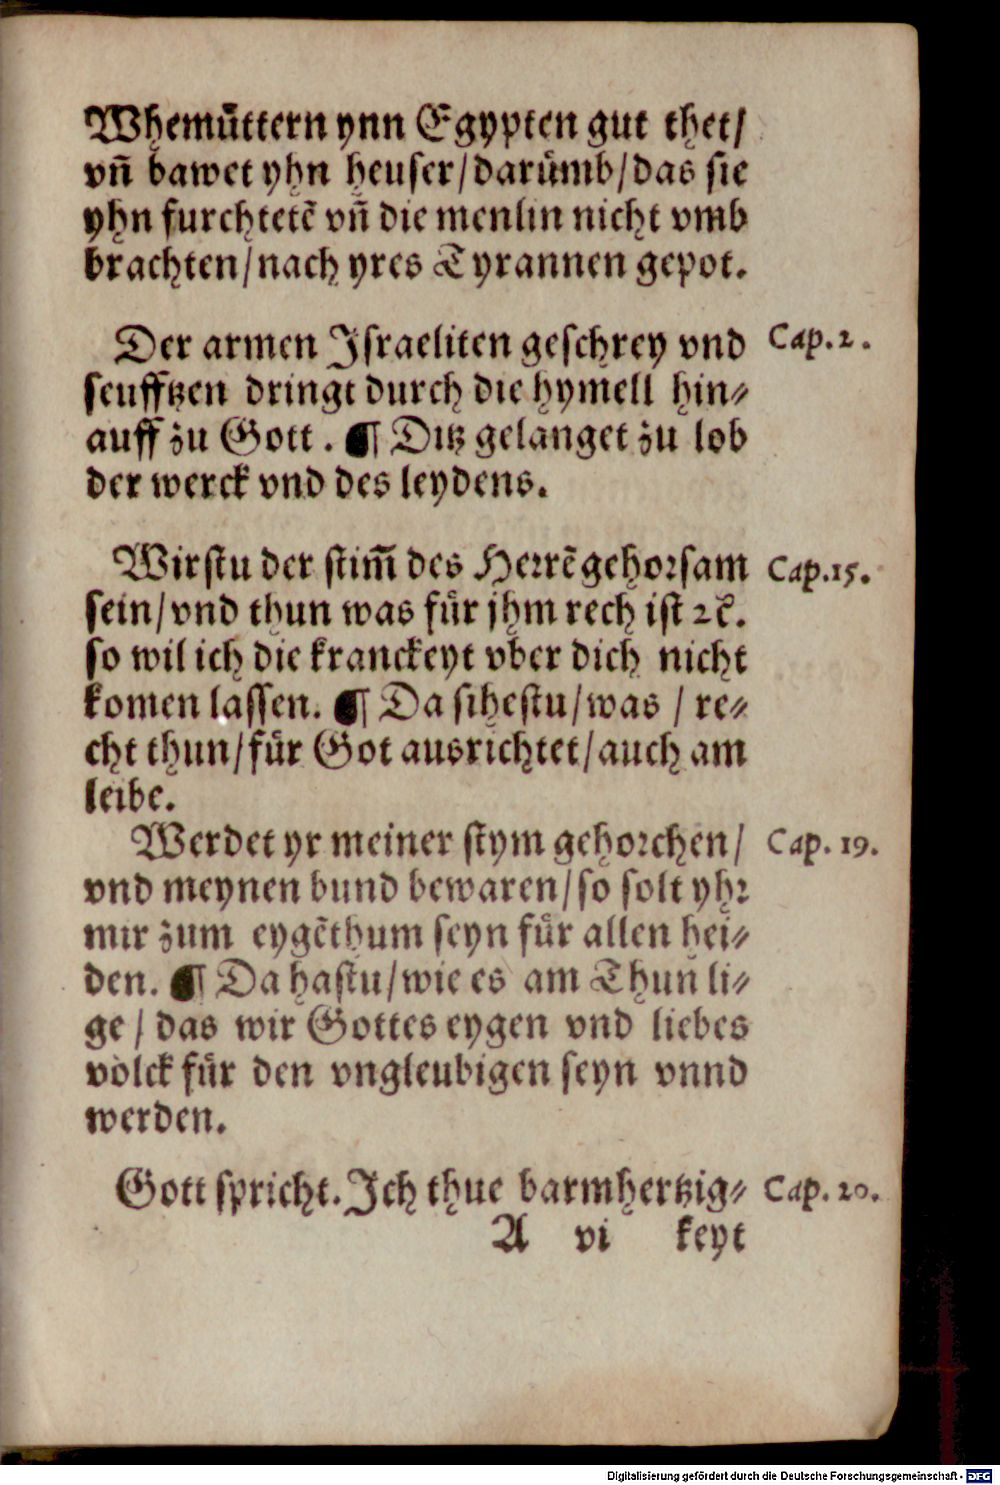 Whemuͤttern ynn Egypten gut thet/
vñ bawet yhn heuser/daruͤmb/das sie
yhn furchtetē vñ die menlin nicht vmb
brachten/nach yres Tyrannen gepot.
Der armen Israeliten geschrey vnd Cap.2.
seufftzen dringt durch die hymell hin⸗
auff zu Gott. ¶ Ditz gelanget zu lob
der werck vnd des leydens.
Wirstu der stim̃ des Herrē gehorsam Cap.15.
sein/vnd thun was fuͤr jhm rech ist ꝛc̃.
so wil ich die kranckeyt vber dich nicht
komen lassen. ¶ Da sihestu/was / re⸗
cht thun/fuͤr Got ausrichtet/auch am
leibe.
Werdet yr meiner stym gehorchen/ Cap. 19.
vnd meynen bund bewaren/so solt yhr
mir zum eygēthum seyn fuͤr allen hei⸗
den. ¶ Da hastu/wie es am Thun li⸗
ge/das wir Gottes eygen vnd liebes
voͤlck fuͤr den vngleubigen seyn vnnd
werden.
Gott spricht. Ich thue barmhertzig⸗ Cap. 20.
A vi keyt
Digitalisierung gefördert durch die Deutsche Forschungsgemeinschaft - DFG